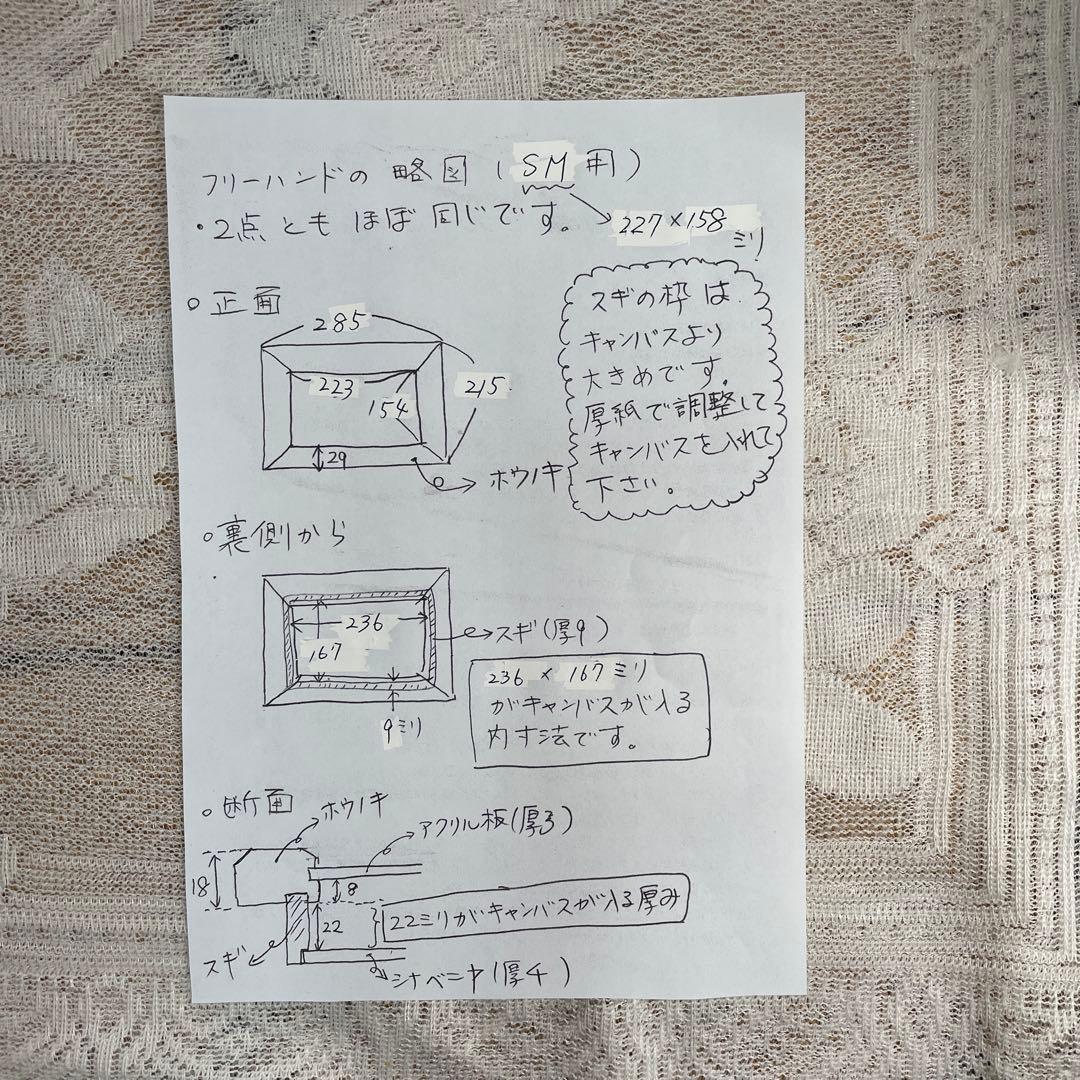 フリーハンドの略図(SM用)
・2点ともほぼ同じです。
227×158
ミリ
○正面
285
223
154
215
29
ホウノキ
スギの枠は
キャンバスより
大きめです。
厚紙で調整して
キャンバスを入れて
下さい。
○裏側から
236
167
9ミリ
スギ(厚9)
236×167ミリ
がキャンバスが入る
内寸法です。
○断面
ホウノキ
アクリル板(厚3)
18
8
22
22ミリがキャンバスが入る厚み
スギ
シナベニヤ(厚4)